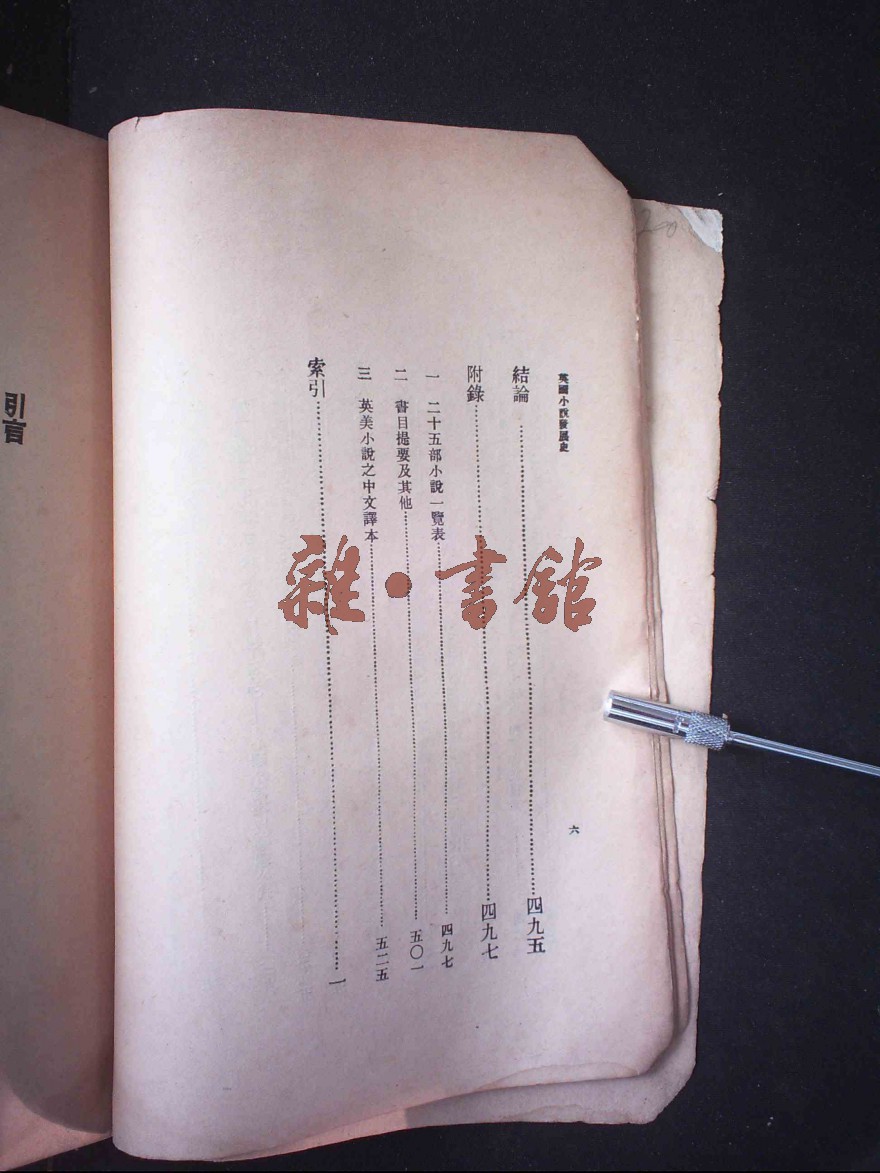 英國小說發展史
六
結論四九五
附錄四九七
一 二十五部小說一覽表四九七
二 書目提要及其他五〇一
三 英美小說之中文譯本五二五
索引一
引言
雜·書館
20